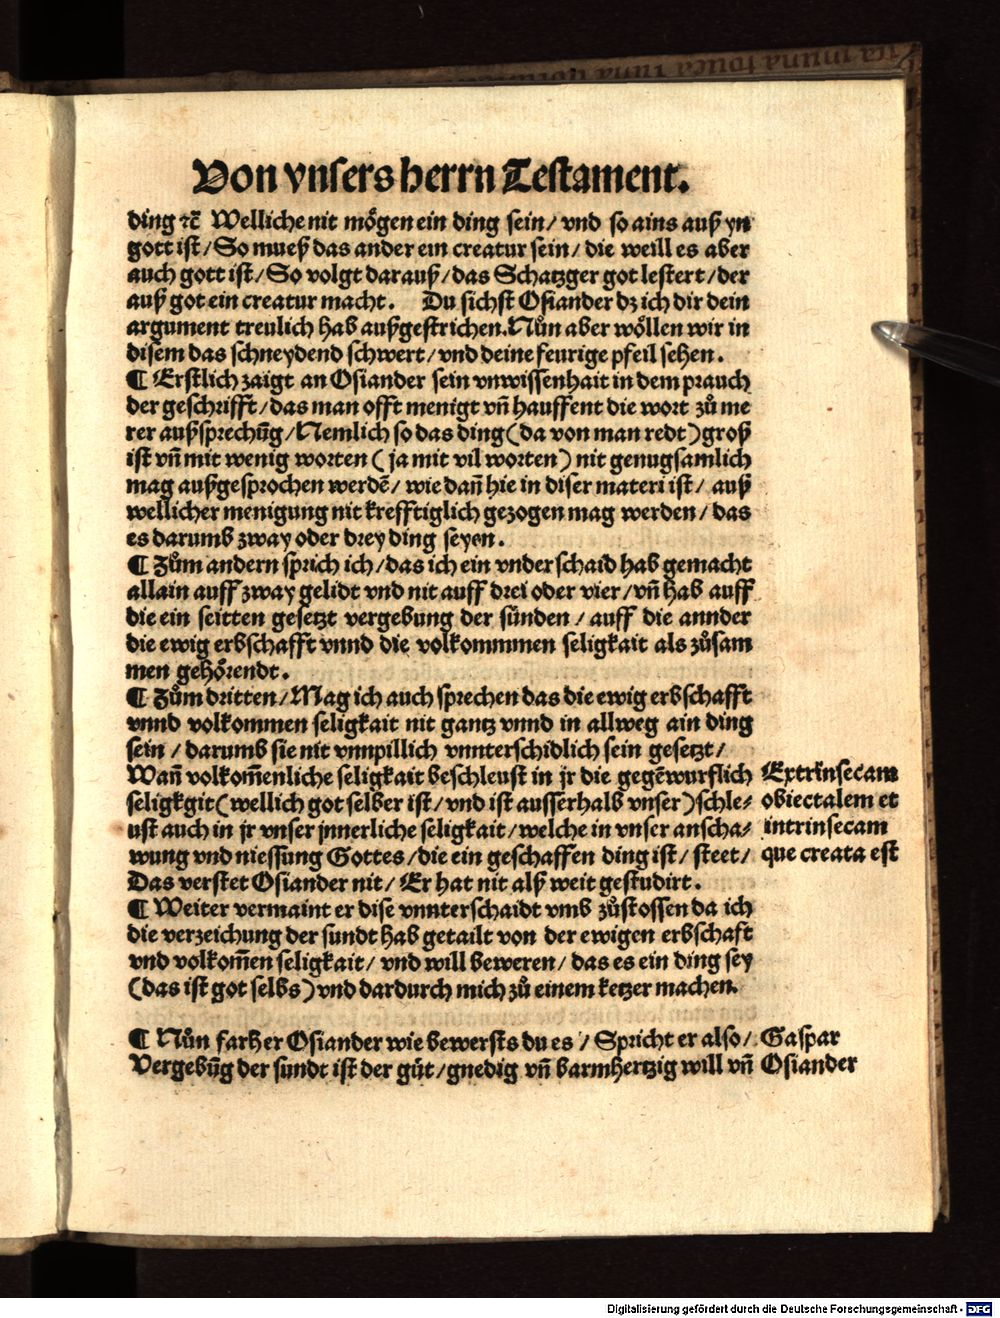 Von vnsers herrn Testament.
ding ⁊c̄ Welliche nit mögen ein ding sein/ vnd so ains auß yn
gott ist/ So mueß das ander ein creatur sein/ die weill es aber
auch gott ist/ So volgt darauß/ das Schatzger got lestert/ der
auß got ein creatur macht. Du sichst Osiander dz ich dir dein
argument treulich hab außgestrichen. Nůn aber wöllen wir in
disem das schneydend schwert/ vnd deine feurige pfeil sehen.
¶ Erstlich zaigt an Osiander sein vnwissenhait in dem prauch
der geschrifft/ das man offt menigt vn̄ hauffent die wort zů me
rer außsprechūg/ Nemlich so das ding (da von man redt) groß
ist vn̄ mit wenig worten (ja mit vil worten) nit genugsamlich
mag außgesprochen werdē/ wie dan̄ hie in diser materi ist/ auß
wellicher menigung nit krefftiglich gezogen mag werden/ das
es darumb zway oder drey ding seyen.
¶ Zům andern sprich ich/ das ich ein vnderschaid hab gemacht
allain auff zway gelidt vnd nit auff drei oder vier/ vn̄ hab auff
die ein seitten gesetzt vergebung der sünden/ auff die annder
die ewig erbschafft vnnd die volkommmen seligkait als zůsam
men gehörendt.
¶ Zům dritten/ Mag ich auch sprechen das die ewig erbschafft
vnnd volkommen seligkait nit gantz vnnd in allweg ain ding
sein/ darumb sie nit vnnpillich vnnterschidlich sein gesetzt/
Wan̄ volkom̄enliche seligkait beschleust in jr die gegēwurflich
seligkgit (wellich got selber ist/ vnd ist ausserhalb vnser) schle⸗
ust auch in jr vnser jnnerliche seligkait/ welche in vnser anscha⸗
wung vnd niessung Gottes/ die ein geschaffen ding ist/ steet/
Das verstet Osiander nit/ Er hat nit alß weit gestudirt.
Extrinsecam
obiectalem et
intrinsecam
que creata est
¶ Weiter vermaint er dise vnnterschaidt vmb zůstossen da ich
die verzeichung der sundt hab getailt von der ewigen erbschaft
vnd volkom̄en seligkait/ vnd will beweren/ das es ein ding sey
(das ist got selbs) vnd dardurch mich zů einem ketzer machen.
¶ Nůn farher Osiander wie bewersts du es/ Spricht er also/
Vergebūg der sundt ist der güt/ gnedig vn̄ barmhertzig will vn̄
Gaspar
Osiander
Digitalisierung gefördert durch die Deutsche Forschungsgemeinschaft - DFG